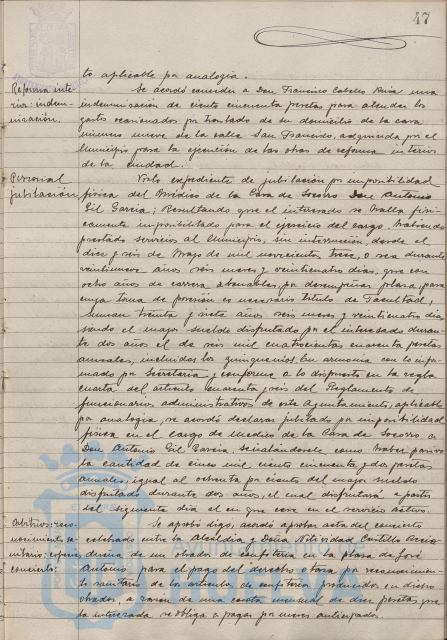 47
to aplicable por analogía.
Reforma inte-
rior: indem-
nización.
Se acordó conceder a Don Francisco Cabello Ruiz una
indemnización de ciento cincuenta pesetas para atender los
gastos ocasionados por traslado de su domicilio de la casa
número nueve de la calle San Francisco, adquirida por el
Municipio para la ejecución de las obras de reforma interior
de la ciudad.
Personal
jubilación
Visto expediente de jubilación por imposibilidad
física del Médico de la Casa de Socorro Don Antonio
Gil García; Resultando que el interesado se halla físi-
camente imposibilitado para el ejercicio del cargo, habiendo
prestado servicios al Municipio, sin interrupción, desde el
diez y seis de Mayo de mil novecientos trece, o sea durante
veintinueve años seis meses y veinticuatro días, que con
ocho años de carrera abonables por desempeñar plaza, para
cuya toma de posesión es necesario título de Facultad,
suman treinta y siete años seis meses y veinticuatro días
siendo el mayor sueldo disfrutado por el interesado duran-
te dos años el de seis mil cuatrocientas cuarenta pesetas
anuales, incluidos los quinquenios. En armonía con lo infor-
mado por Secretaría y conforme a lo dispuesto en la regla
cuarta del artículo cuarenta y seis del Reglamento de
funcionarios administrativos de este Ayuntamiento, aplicable
por analogía, se acordó declarar jubilado por imposibilidad
física en el cargo de médico de la Casa de Socorro a
Don Antonio Gil García, señalándosele como haber pasivo
la cantidad de cinco mil, ciento cincuenta y dos pesetas
anuales, igual al ochenta por ciento del mayor sueldo
disfrutado durante dos años, el cual disfrutará a partir
del siguiente día al en que cese en el servicio activo.
Arbitrios: reco-
nocimiento sa-
nitario;
concierto:
Se aprobó digo, acordó aprobar acta del concierto
celebrado entre la Alcaldía y Doña Natividad Castillo
dueña de un obrador de confitería en la plaza de José
Antonio para el pago del derecho o tasa por reconocimien-
to sanitario de los artículos de confitería producidos en dicho
obrador, a razón de una cuota mensual de diez pesetas que
la interesada se obliga a pagar por meses anticipados.